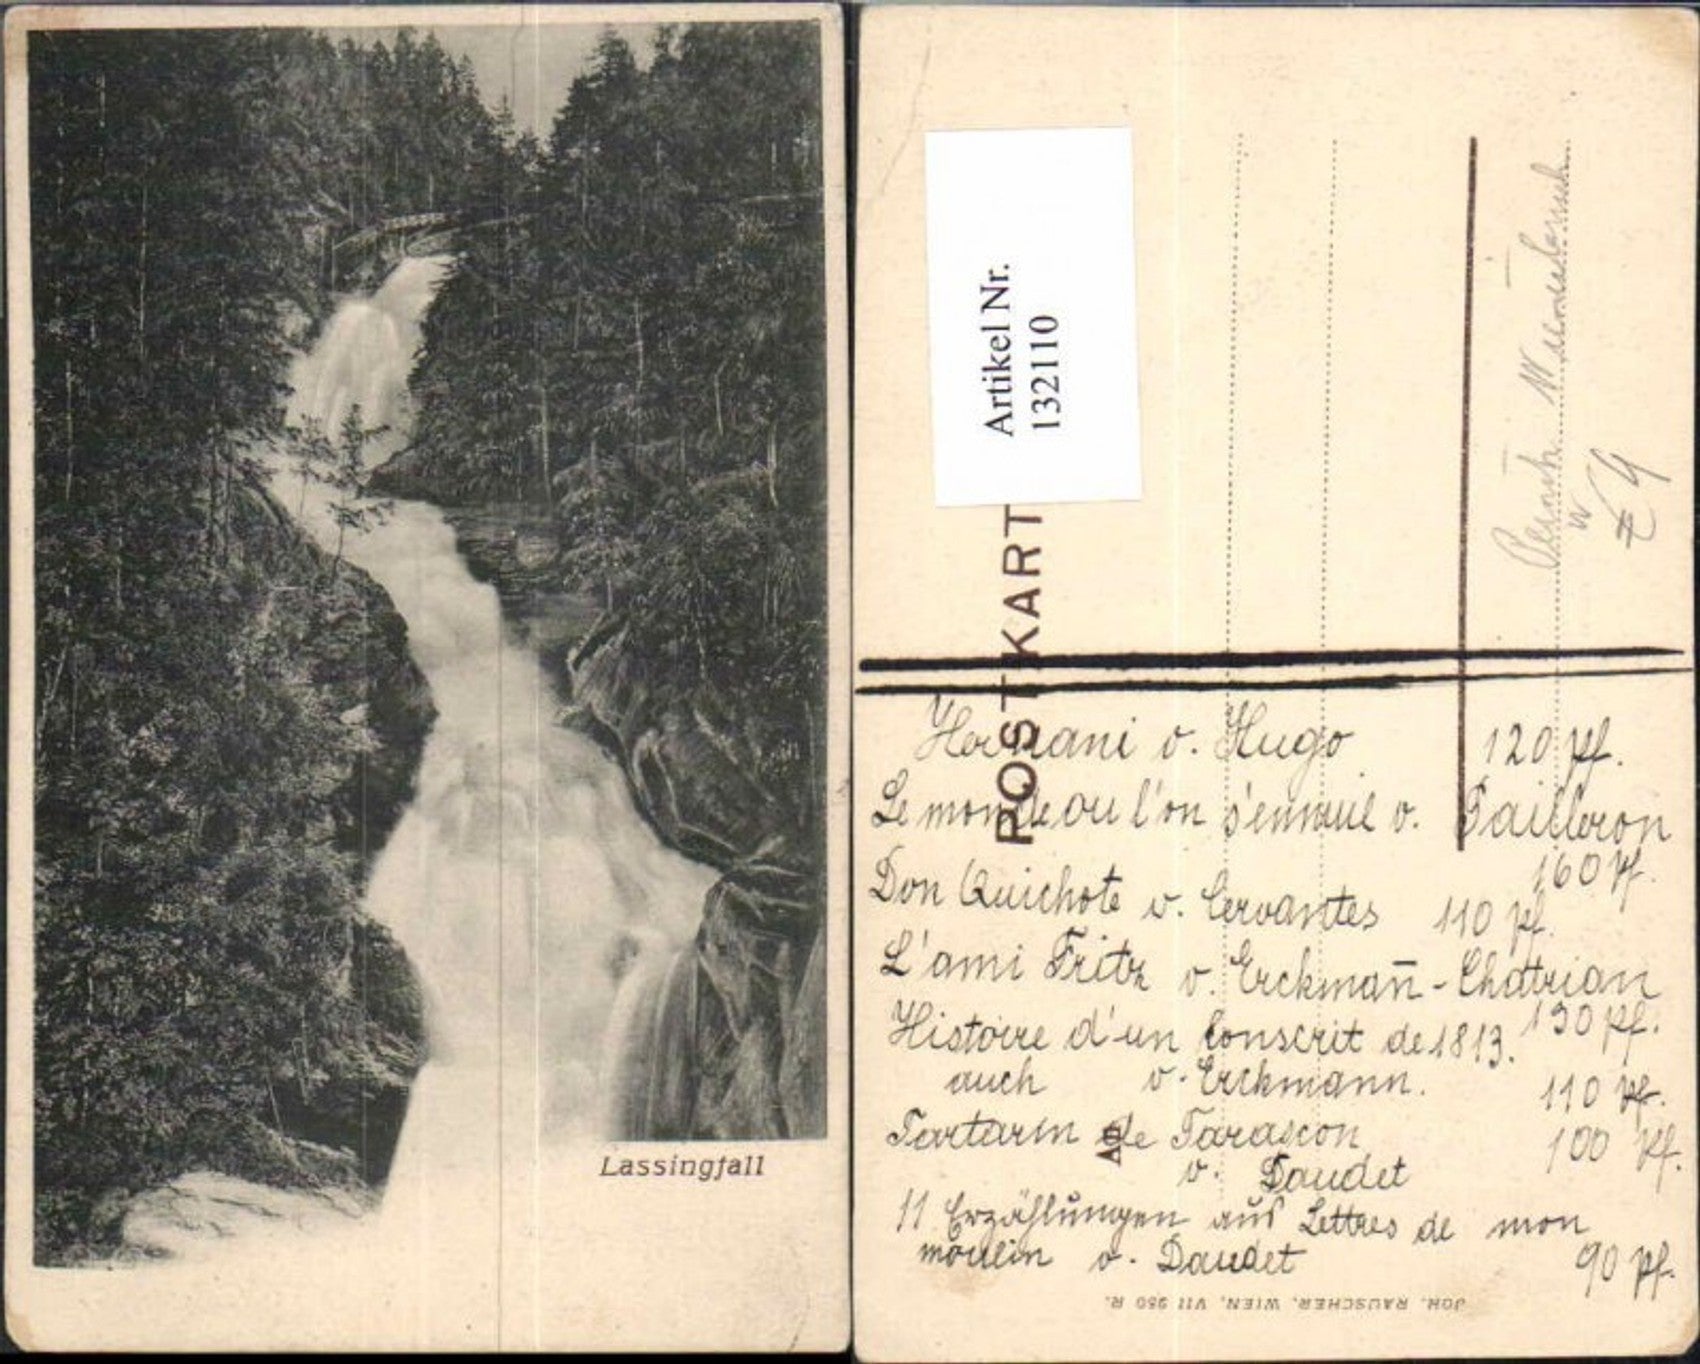 Lassingfall
Artikel Nr.
132110
POSTKART
€ 9
Hernani v. Hugo 120 Pf.
Le monde ou l'on s'ennuie v. Pailleron
160 Pf.
Don Quichote v. Cervantes 110 Pf.
L'ami Fritz v. Erckman̄-Chatrian
130 Pf.
Histoire d'un Conscrit de 1813.
auch v. Erckmann. 110 Pf.
Tartarin de Tarascon 100 Pf.
v. Daudet
11 Erzählungen aus Lettres de mon
moulin v. Daudet 90 Pf.
JOH. RAUSCHER, WIEN, VII 950 R.